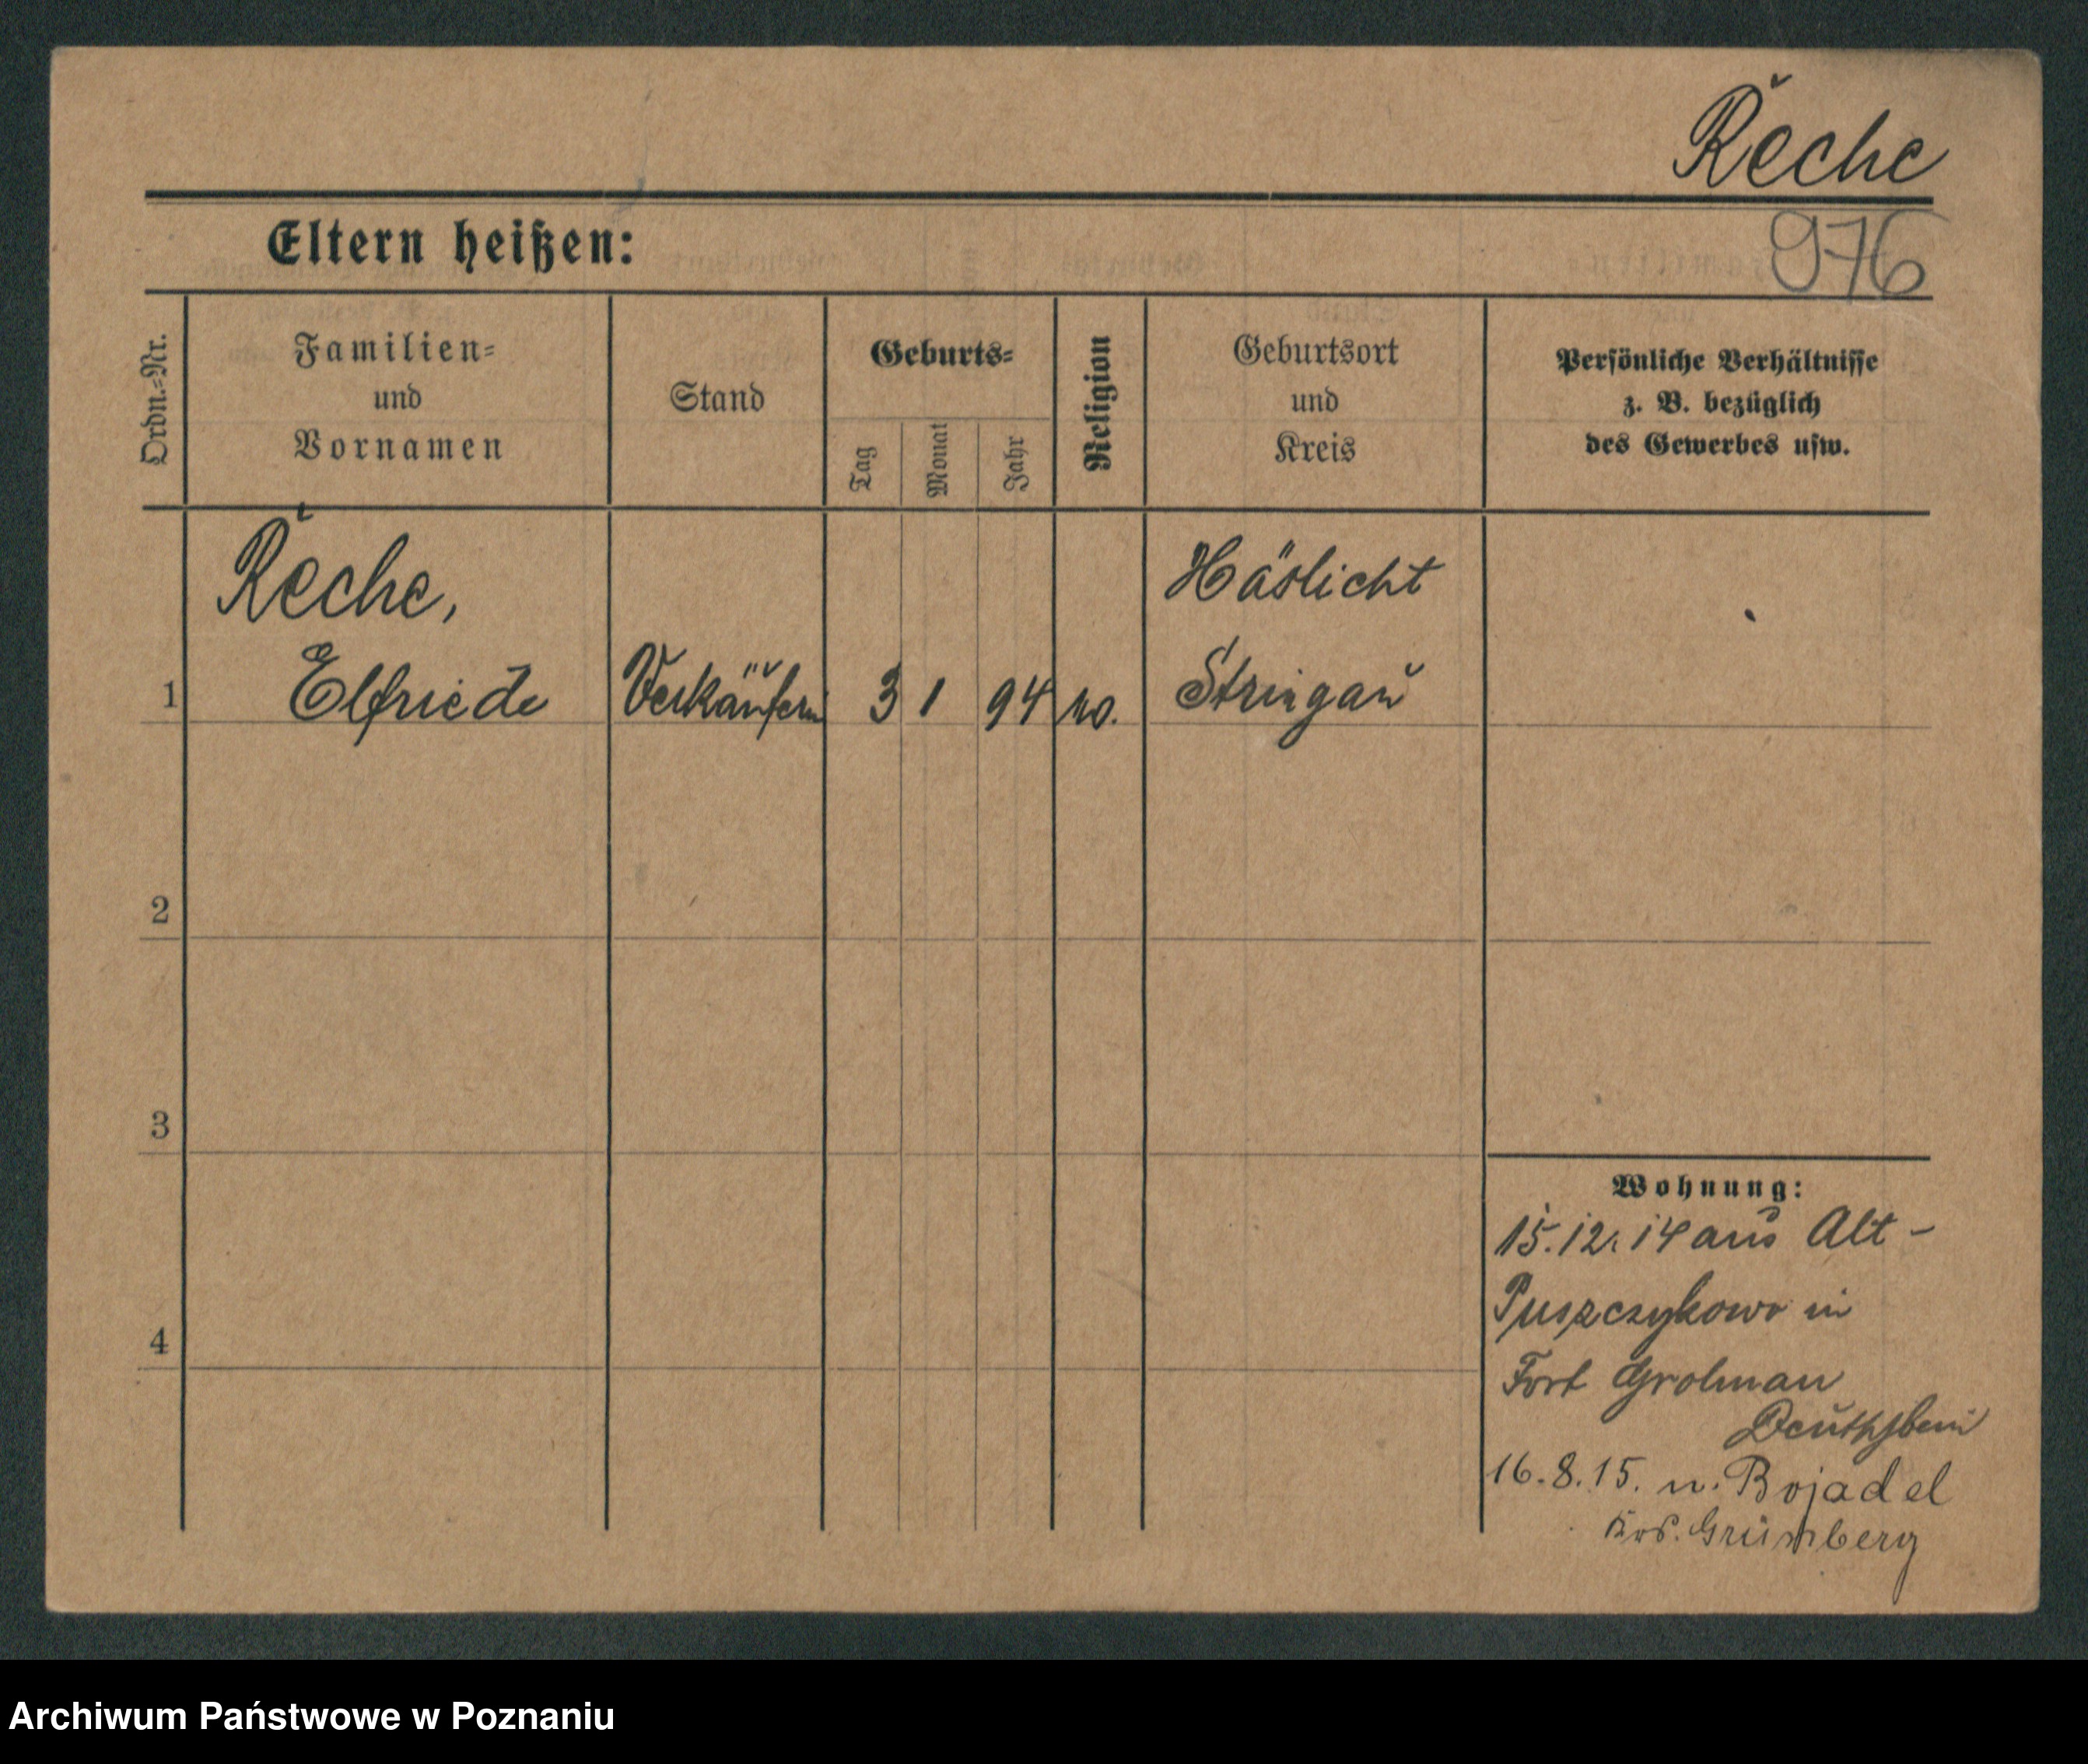 Reche
976
Eltern heißen:
Ordn.-Nr.
Familien-
und
Vornamen
Stand
Geburts-
Tag
Monat
Jahr
Religion
Geburtsort
und
Kreis
Persönliche Verhältnisse
z. B. bezüglich
des Gewerbes usw.
Reche,
Häslicht
1 Elfriede Verkäuferin 3 1 94 Striegau
2
3
4
Wohnung:
15.12.14 aus Alt-
Puszczykowo in
Fort Grolman
16.8.15. n. Bojadel
Krs. Grünberg
Archiwum Państwowe w Poznaniu